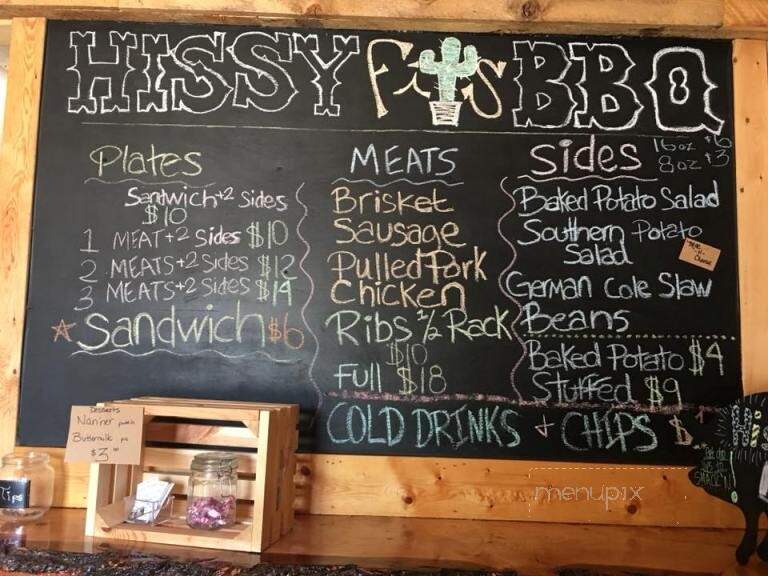 HISSY Fits BBQ
Plates
Sandwich+2 Sides
$10
1 MEAT+2 Sides $10
2 MEATS+2 Sides $12
3 MEATS+2 Sides $14
Sandwich $6
MEATS
Brisket
Sausage
Pulled Pork
Chicken
Ribs 1/2 Rack
$10
Full $18
Sides
16oz $6
8oz $3
Baked Potato Salad
Southern Potato
Salad
German Cole Slaw
Beans
Baked Potato $4
Stuffed $9
COLD DRINKS + CHIPS $
Desserts
Nan'ner
Buttermilk pie
$3
Tips
menupix